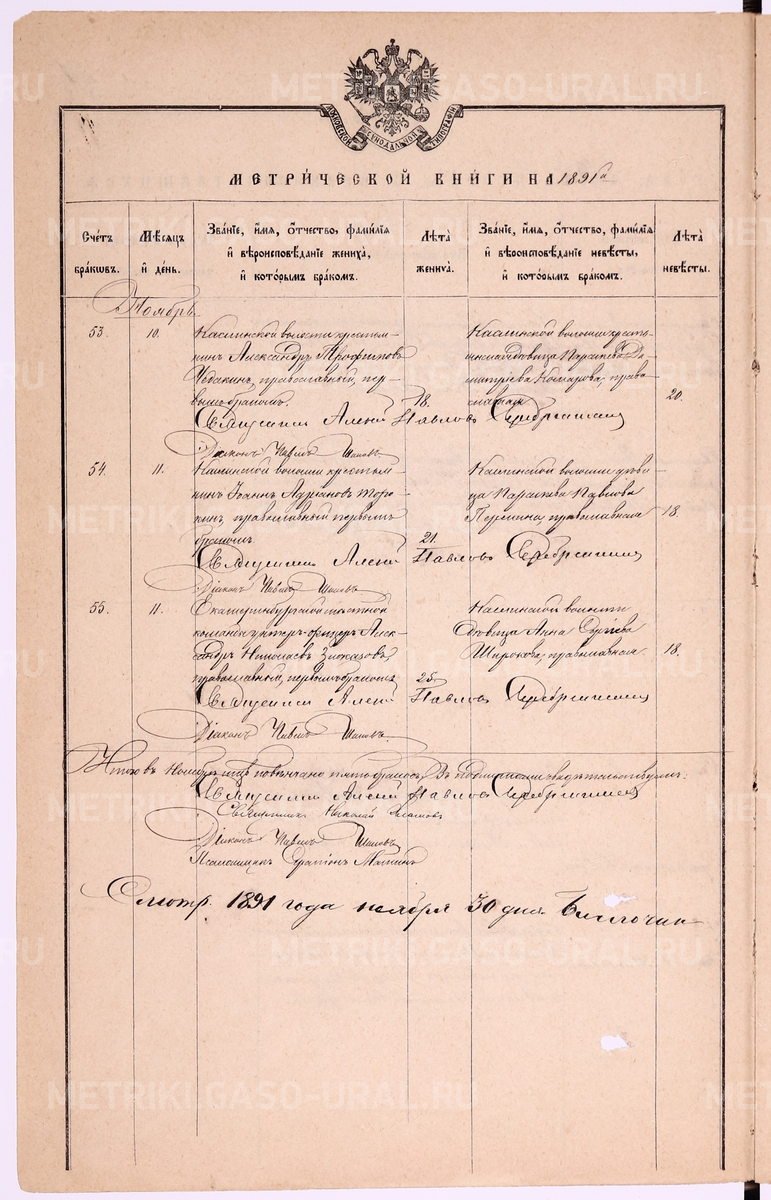 МОСКОВСКОЙ СѴНОДАЛЬНОЙ ТИПОГРАФІИ
МЕТРИ́ЧЕСКОЙ КНИ́ГИ НА 1891й
Счетъ браковъ.
Мѣсяцъ и день.
Званіе, имя, отчество, фамилія и вѣроисповѣданіе жениха, и которымъ бракомъ.
Лѣта жениха.
Званіе, имя, отчество, фамилія и вѣроисповѣданіе невѣсты, и которымъ бракомъ.
Лѣта невѣсты.
Ноябрь
53. 10.
Каслинской волости крестья-
нинъ Александръ Трофимовъ
Чебакинъ, православный, пер-
вымъ бракомъ.
18.
Каслинской волости кресть-
янская дѣвица Параскева Ди-
митріева Комарова, право-
славная
20.
Священникъ Алексѣй Павловъ Серебренниковъ
Діаконъ Павелъ Шаховъ
54. 11.
Каслинской волости крестья-
нинъ Іоаннъ Адріановъ
православный первымъ
бракомъ
21.
Каслинской волости дѣви-
ца Параскева Павлова
православная
18.
Священникъ Алексѣй Павловъ Серебренниковъ
Діаконъ Павелъ Шаховъ
55. 11.
Екатеринбургской мѣстной
команды унтеръ-офицеръ Алек-
сандръ Николаевъ Злоказовъ,
православный, первымъ бракомъ
25.
Каслинской волости
дѣвица Анна Сергіева
Широкова, православная
18.
Священникъ Алексѣй Павловъ Серебренниковъ
Діаконъ Павелъ Шаховъ
Итого въ Ноябрѣ мѣсяцѣ повѣнчано пять браковъ. Въ подлинности свидѣтельствуемъ:
Священникъ Алексѣй Павловъ Серебренниковъ
Священникъ Николай
Діаконъ Павелъ Шаховъ
Псаломщикъ Серапіонъ
Смотр. 1891 года ноября 30 дня Благочин
METRIKI.GASO-URAL.RU